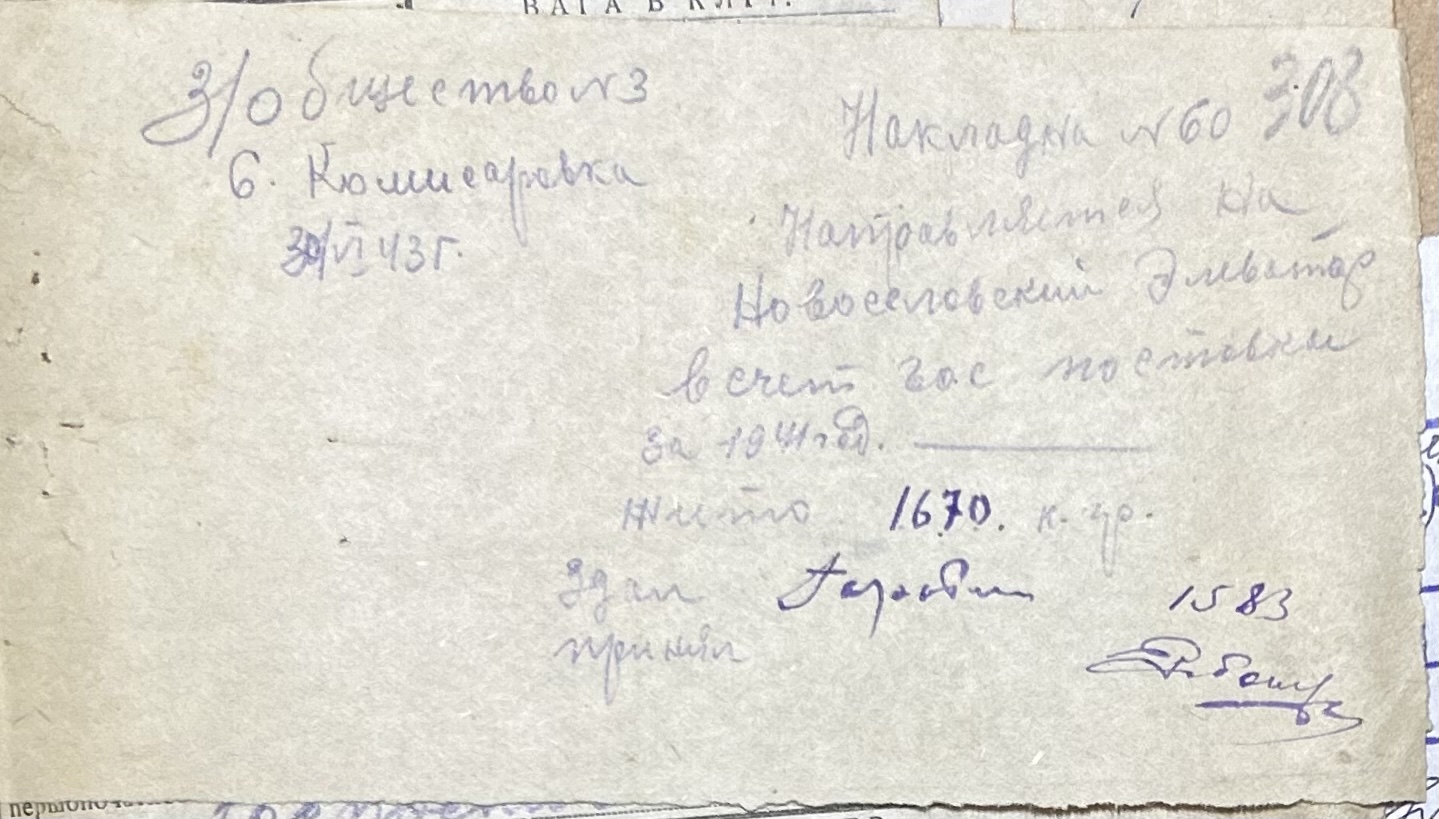 ВАГА В КЛГР.
З/Общество №3
С. Комисаровка
30/VI 43 г.
308
Накладна №60
Направляется на
Новоселовский Элеватор
в счет гос поставки
за 1941 год.
жито 1670. к. гр.
Здал
1583
принял